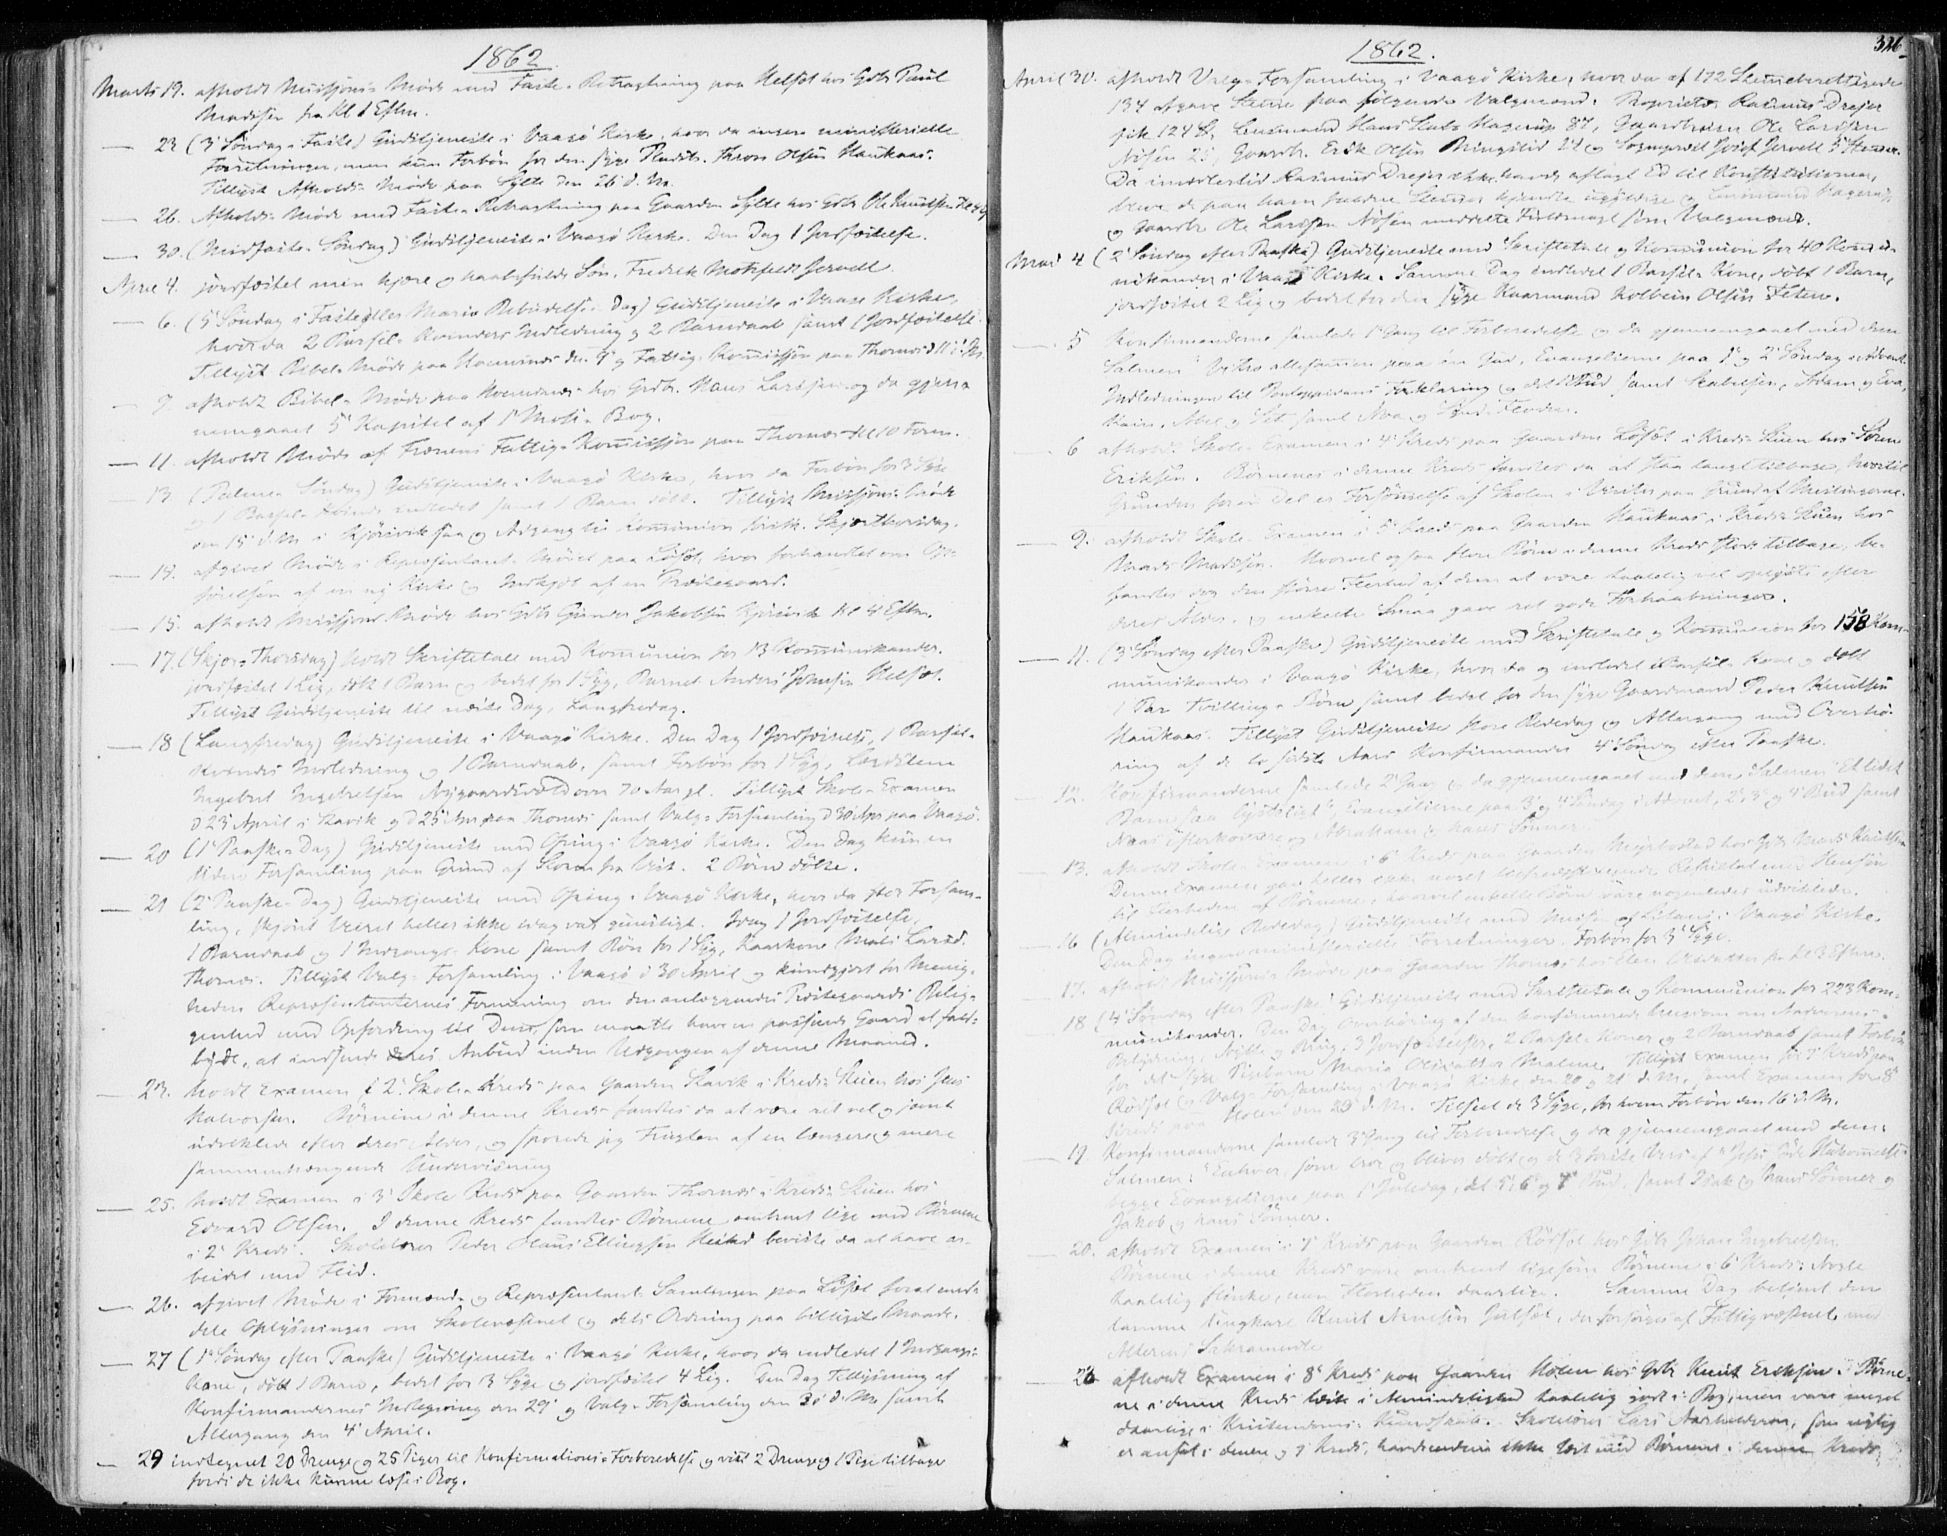 1862.
Marts 19. afholdt Missjons-Møde med Faste-Betragtning paa Helsøt hos Gdb. Paul
Madsen fra Kl. 1 Eftm.
— 23 (3' Søndag i Faste) Gudstjeneste i Vaagø Kirke, hvor da ingen ministerielle
Forretninger, men kun Forbøn for den syge Olsen Haukaas.
Tillyst Afholds-Møde paa Sylte den 26' d. M.
— 26. Afholds-Møde med Faste-Betragtning paa Gaarden Sylte hos Gdb. Ole Knudsen
— 30. (Midfaste-Søndag) Gudstjeneste i Vaagø Kirke. Den Dag 1 Jordfæstelse.
April 4. jordfæstet min kjere og haabefulde Søn, Fredrik Motzfeldt Jervell.
— 6. (5' Søndag i Faste eller Maria Bebudelses-Dag) Gudstjeneste i Vaagø Kirke,
hvor da 2 Barsel-Kvinders Indledning og 2 Barndaab samt 1 Jordfæstelse.
Tillyst Bibel-Møde paa den 9' og Fattig-Kommissjon paa Thornæs d. 11' d. M.
— 9. afholdt Bibel-Møde paa hos Gdb. Hans Larssen og da gjen-
nemgaaet 5' Kapitel af 1' Mosi-Bog.
— 11. afholdt Møde af Frænens Fattig-Kommissjon paa Thornæs Kl. 10 Form.
— 13. (Palme-Søndag) Gudstjeneste i Vaagø Kirke, hvor da Forbøn for 3 Syge
og 1 Barsel-Kvinde indledet samt 1 Barn døbt. Tillyst Missjons-Møde
den 15' d. M. i og Adgang til Kommunion førstk. Skjærthorsdag.
— 14. afgivet Møde i Repræsentant-Mødet paa Løset, hvor forhandlet om Op-
førelsen af en ny Kirke og Indkjøb af en Præstegaard.
— 15. afholdt Missjons-Møde hos Gdb. Gunder Jakobsen Kl. 4 Eftm.
— 17. (Skjær-Thorsdag) holdt Skriftetale med Kommunion for 13 Kommunikander.
jordfæstet 1 Lig, døbt 1 Barn og bedet for 1 Syg, Barnet Anders Johnsen Helsøt.
Tillyst Gudstjeneste til næste Dag, Langfredag.
— 18 (Langfredag) Gudstjeneste i Vaagø Kirke. Den Dag 1 Jordfæstelse, 1 Barsel-
Kvindes Indledning og 1 Barndaab, samt Forbøn for 1 Syg,
Ingebret Ingebretsen over 70 Aar gl. Tillyst Skole-Examen
d 23' April i Skavik og d 25' Apr. paa Thornæs samt Valg-Forsamling d 30' Apr. paa Vaagø.
— 20 (1' Paaske-Dag) Gudstjeneste med Ofring i Vaagø Kirke. Den Dag kun en
liden Forsamling paa Grund af Storm fra Vest. 2 Børn døbte.
— 21 (2' Paaske-Dag) Gudstjeneste med Ofring i Vaagø Kirke, hvor da stor Forsam-
ling, skjønt Veiret heller ikke idag var gunstigt. Idag 1 Jordfæstelse,
1 Barndaab og 1 Indgangs-Kone samt Bøn for 1 Syg, Kaarkone Mali Larsd.
Thornæs. Tillyst Valg-Forsamling i Vaagø d 30 April og kundgjort for Menig-
heden Repræsentanternes Formening om den anlæggendes Præstegaards Belig-
genhed med Opfordring til Dem, som maatte have en passende Gaard at falds-
byde, at indsende deres Anbud inden Udgangen af denne Maaned.
— 23. holdt Examen i 2' Skole-Kreds paa Gaarden Skavik i Kreds-Stuen hos Jens
Halvorsen. Børnene i denne Kreds fandtes da at være ret vel og jævnt
udviklede efter deres Alder, og sporede jeg Frugten af en længere og mere
sammenhængende Undervisning
— 25. holdt Examen i 3' Skole-Kreds paa Gaarden Thornæs i Kreds-Stuen hos
Edvard Olsen. I denne Kreds fandtes Børnene omtrent lige med Børnene
i 2' Kreds. Skolelærer Peder Hans Ellingsen beviste da at have ar-
beidet med Flid.
— 26. afgivet Møde i Formands- og Repræsentant-Samlingen paa Løset for at med-
dele Oplysninger om Skolevæsenet og dets Ordning paa billigste Maade.
— 27 (1' Søndag efter Paaske) Gudstjeneste i Vaagø Kirke, hvor da indledet 1 Indgangs-
Kone, døbt 1 Barn, bedet for 3 Syge og jordfæstet 4 Lig. Den Dag Tillysning af
Konfirmandernes Indtegning den 29' og Valg-Forsamling den 30' d. M. samt
Altergang den 4' April.
— 29 indtegnet 20 Drenge og 25 Piger til Konfirmations-Forberedelse og vist 2 Drenge og 1 Pige tilbage
fordi de ikke kunne læse i Bog.
1862.
326
April 30. afholdt Valg-Forsamling i Vaagø Kirke, hvor da af 172 Stemmeberettigede
134 afgave Stemme paa følgende Valgmænd: Proprietær Rasmus Drejer
fik 124 St., Lensmand Hans Hagerup 87, Gaardbruger Ole Larssen
Nøsen 25, Gaardb. Erik Olsen Ringstad 24 og Sogneprest Josef Jervell 5 Stemmer.
Da imidlertid Rasmus Drejer ikke havde aflagt Ed til Konstitutionen,
bleve de paa ham faldne Stemmer kjendte ugyldige og Lensmand Hagerup
og Gaardb. Ole Larssen Nøsen meddelte Fuldmagt som Valgmænd.
Mai 4 (2' Søndag efter Paaske) Gudstjeneste med Skriftetale og Kommunion for 40 Kommu-
nikander i Vaagø Kirke. Samme Dag indledet 1 Barsel-Kone, døbt 1 Barn,
jordfæstet 2 Lig og bedet for den syge Kaarmand Kolbein Olsen Feten.
— 5 Konfirmanderne samlede 1' Gang til Forberedelse og da gjennemgaaet med dem
Salmen: Vi tro allesammen paa en Gud, Evangelierne paa 1' og 2' Søndag i Advent.
Indledningen til Pontoppidans Forklaring og det 1' Bud samt Skabelsen, Adam og Eva,
Kain, Abel og Set samt Noa og Synd-Floden.
— 6 afholdt Skole-Examen i 4' Kreds paa Gaarden Løset i Kreds-Stuen hos Søren
Eriksen. Børnenes i denne Kreds fandtes da at staa langt tilbage, hvortil
Grunden for en Del er Forsømmelse af Skolen i Vinter paa Grund af Meslingerne.
— 9. afholdt Skole-Examen i 5' Kreds paa Gaarden Haukaas i Kreds-Stuen hos
Mads Madssen. Hvorvel ogsaa flere Børn i denne Kreds stode tilbage, be-
fandtes dog den større Flerhed af dem at være taalelig vel oplyste efter
deres Alder, og enkelte Smaa gave ret gode Forhaabninger.
— 11. (3' Søndag efter Paaske) Gudstjeneste med Skriftetale og Kommunion for 158 Kom-
munikander i Vaagø Kirke, hvor da og indledet 1 Barsel-Kone og døbt
1 Par Tvilling-Børn samt bedet for den syge Gaardmand Peder Knudsen
Haukaas. Tillyst Gudstjeneste store Bededag og Altergang med Overhø-
ring af de to sidste Aars Konfirmander 4' Søndag efter Paaske.
— 12. Konfirmanderne samlede 2' Gang og da gjennemgaaet med dem Salmen "Et lidet
Barn saa lysteligt", Evangelierne paa 3' og 4' Søndag i Advent, 2', 3' og 4' Bud samt
Noas Efterkommere og Abraham og hans Sønner.
— 13. afholdt Skole-Examen i 6' Kreds paa Gaarden Myrbostad hos Gdb. Mads Knudsen
Denne Examen gav heller ikke noget tilfredsstillende Resultat med Hensyn
til Flerheden af Børnene, hvorvel enkelte Børn vare nogenledes udviklede.
— 16 (Almindelige Bededag) Gudstjeneste med Messe og Litani i Vaagø Kirke.
Den Dag ingen ministerielle Forretninger. Forbøn for 3 Syge.
— 17. afholdt Missjons-Møde paa Gaarden Thornæs hos Elen Olsdatter fra Kl. 3 Eftm.
— 18 (4' Søndag efter Paaske) Gudstjeneste med Skriftetale og Kommunion for 223 Kom-
munikander. Den Dag Overhøring af den konfirmerede Ungdom om
Betydning, Nytte og Brug. 3 Jordfæstelser, 2 Barsel-Koner og 2 Barndaab samt Forbøn
for det syge Pigebarn Maria Olsdatter Malme. Tillyst Examen for 7' Kreds paa
Rødsøt og Valg-Forsamling i Vaagø Kirke den 20' og 21' d. M. samt Examen for 8'
Kreds paa Molen den 23' d. M. Tilføiet de 3 Syge, for hvem Forbøn den 16' d. M.
— 19 Konfirmanderne samlede 3' Gang til Forberedelse og da gjennemgaaet med dem:
Salmen: "Enhver, som tror og bliver døbt og de 3 første Vers af "Jesu søde Hukommelse"
begge Evangelierne paa 1' Juledag, det 5', 6' og 7' Bud, samt Isak og hans Sønner og
Jakob og hans Sønner.
— 20. afholdt Examen i 7' Kreds paa Gaarden Rødsøt hos Gdb. Johan Ingebretsen.
Børnene i denne Kreds vare omtrent ligesom Børnene i 6' Kreds: Nogle
taalelig flinke, men Flerheden daarlige. Samme Dag betjent den
lamme Ungkarl Knut Arnesen Gulset, der forsørges af Fattigvæsenet, med
Alterens Sakramente
— 23 afholdt Examen i 8' Kreds paa Gaarden Molen hos Gdb. Knut Eriksen. Børne-
ne i denne Kreds læste i Almindelighed taalelig godt i Bog, men vare meget
daarlige i Kristendoms-Kundskab. Skolelærer Lars Aarhalderen, som nylig
er ansat i denne og 7' Kreds, havde endnu ikke læst med Børnene i denne Kreds,